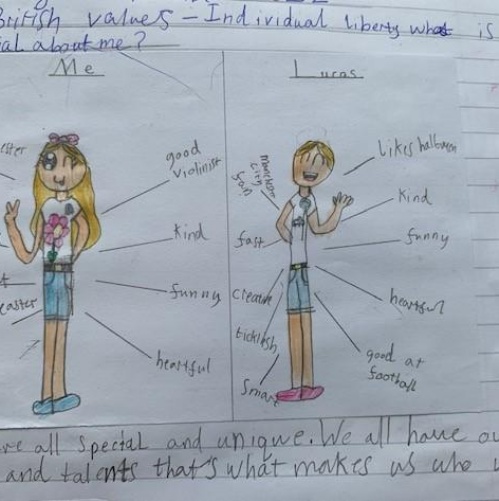 British values - Individual liberty what is
ial about me?
Me
Lucas
good
violinist
kind
funny
heartful
easter
manchester
city
fan
fast
creative
ticklish
smart
likes halloween
kind
funny
heartful
good at
football
re all special and unique. We all have ou
and talents that's what makes us who w